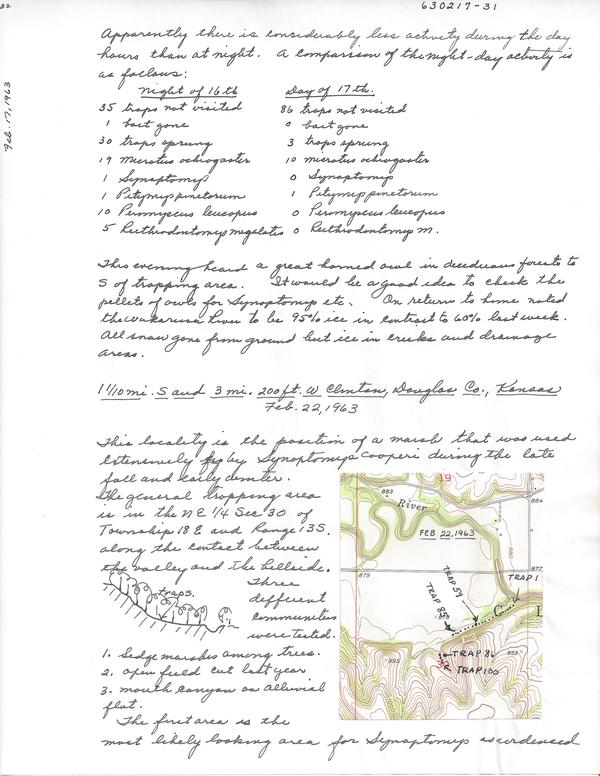 32
630217-31
Feb. 17, 1963
Apparently there is considerably less activity during the day
hours than at night. A comparison of the night-day activity is
as follows:
Night of 16th Day of 17th.
35 traps not visited 86 traps not visited
1 bait gone 0 bait gone
30 traps sprung 3 traps sprung
19 microtus ochrogaster 10 microtus ochrogaster
1 Synaptomys 0 Synaptomys
1 Pitymys pinetorum 1 Pitymys pinetorum
10 Peromyscus leucopus 0 Peromyscus leucopus
5 Reithrodontomys megalotis 0 Reithrodontomys m.
This evening heard a great horned owl in deciduous forests to
S of trapping area. It would be a good idea to check the
pellets of owls for Synaptomys etc. On return to home noted
the wakarusa River to be 95% ice in contrast to 60% last week.
All snow gone from ground but ice in creeks and drainage
areas.
1 1/10 mi. S and 3 mi. 200 ft. W Clinton, Douglas Co., Kansas
Feb. 22, 1963
This locality is the position of a marsh that was used
extensively by Synaptomys cooperi during the late
fall and early winter.
The general trapping area
is in the NE 1/4 Sec 30 of
Township 18 E and Range 13 S.
along the contact between
the valley and the hillside.
traps.
Three
different
communities
were tested.
1. Sedge marshes among trees.
2. open field cut last year
3. mouth canyon on alluvial
flat.
The first area is the
most likely looking area for Synaptomys as evidenced
19
883
884
River
FEB 22, 1963
880
877
879
TRAP 1
TRAP 59
TRAP 85
C
L
950
995
959
TRAP 86
TRAP 100